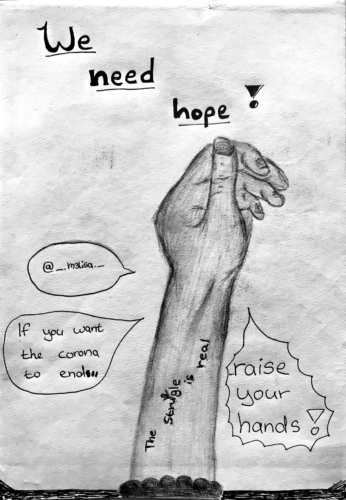 We
need
hope !
@_.m3lisa._
If you want
the corona
to end!!!
The struggle is real
raise
your
hands !